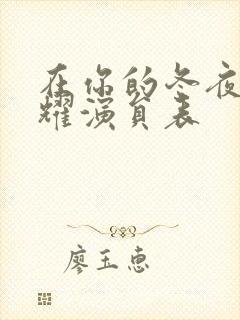 在你的冬夜
耀演员表
廖玉惠